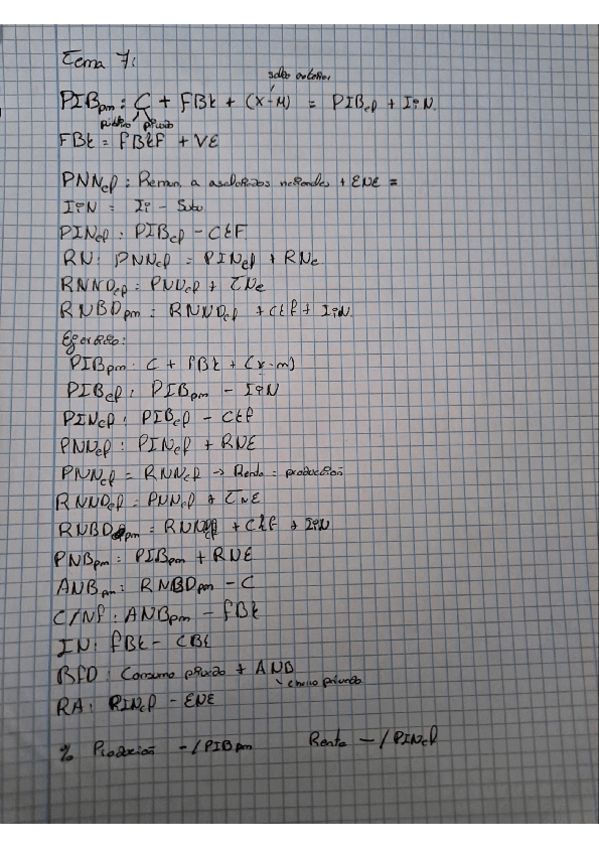 Tema 7:
saldo exterior
PIBpm: C + FBk + (X-M) = PIBcf + IiN.
público privado
FBk = FBkF + VE
PNNcf: Remun. a asalariados nacionales + ENE =
IiN = Ii - Sub
PINcf: PIBcf - CkF
RN: PNNcf = PINcf + RNe
RNNDcf = PNNcf + TNe
RNBDpm = RNNDcf + CkF + IiN.
Ejercicio:
PIBpm: C + FBk + (x-m)
PIBcf: PIBpm - IiN
PINcf: PIBcf - CkF
PNNcf: PINcf + RNE
PNNcf = RNNcf -> Renta = producción
RNNDcf = PNNcf + TNE
RNBDpm = RNNDcf + CkF + IiN
PNBpm: PIBpm + RNE
ANBpm: RNBDpm - C
C/NF: ANBpm - FBk
IN: FBk - CBk
RFD: Consumo privado + ANB
ahorro privado
RA: RINcf - ENE
% Producción - /PIBpm Renta - /PINcf